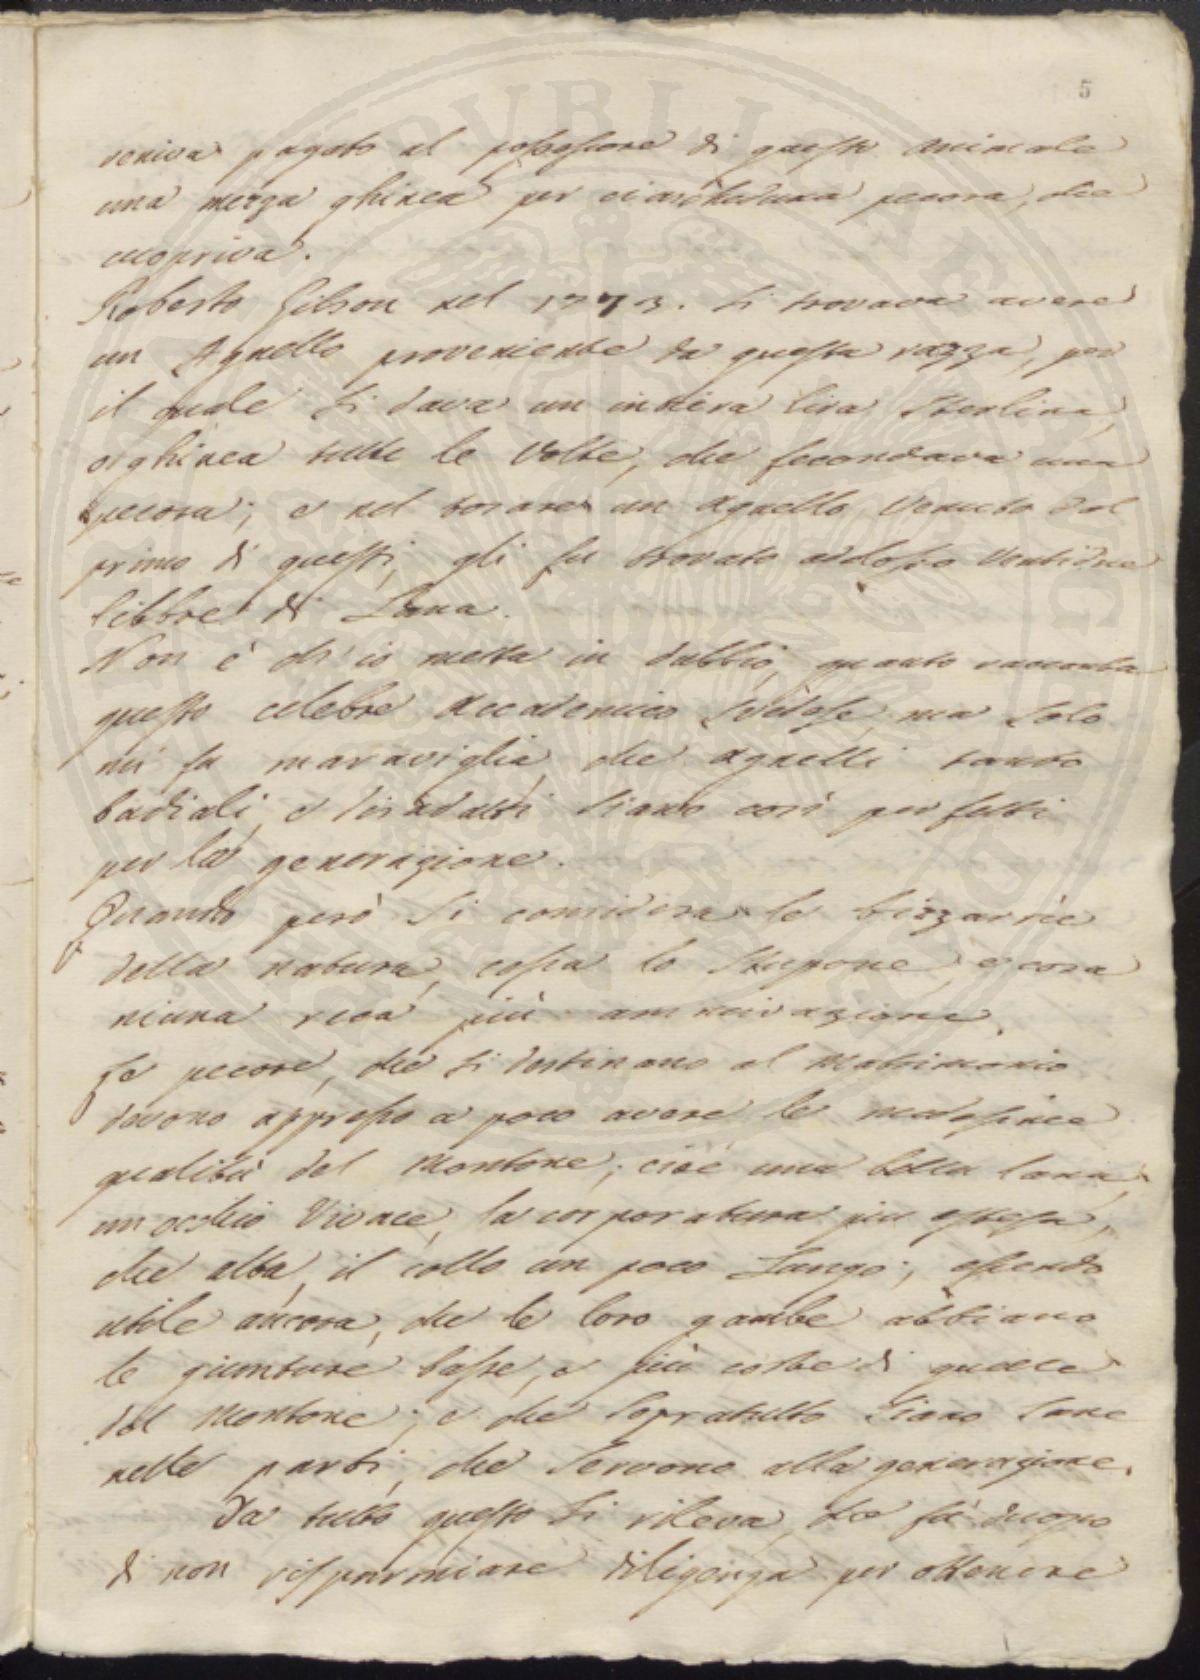 5
veniva pagato al possessore di questo animale
una mezza ghinea per ciascheduna pecora, che
cuopriva.
Roberto Gilson nel 1773. si trovava avere
un Agnello proveniente da questa razza, per
il quale si dava un intiera lira Sterlina,
o ghinea tutte le Volte, che fecondava una
pecora; e nel tosare un Agnello Venuto dal
primo di questi, gli fu trovato addosso Ventidue
libbre di Lana.
Non è ch'io metta in dubbio, quanto racconta
questo celebre Accademico Svedese, ma solo
mi fa maraviglia, che Agnelli tanto
badiali, e disadatti siano così perfetti
per la generazione.
Quando però si considera le bizzarrie
della natura, cessa lo Stupore, e cosa
niuna reca più ammirazione.
Le pecore, che si destinano al Matrimonio
devono appresso a poco avere le medesime
qualità del Montone; cioè una bella lana,
un occhio Vivace, la corporatura più estesa,
che alta, il collo un poco Lungo; essendo
utile ancora, che le loro gambe abbiano
le giunture basse, e più corte di quelle
del Montone; e che sopratutto siano sane
nelle parti, che servono alla generazione.
Da tutto questo si rileva, che fà duopo
di non risparmiare diligenza per ottenere